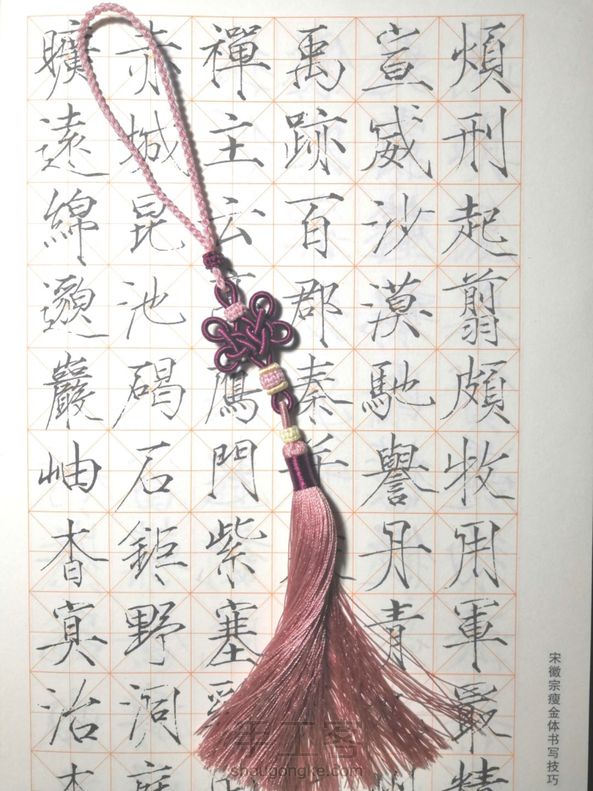 煩刑起翦頗牧用軍最精
宣威沙漠馳譽丹青
禹跡百郡秦
禪主云門紫塞
赤城昆池碣石鉅野洞庭
曠遠綿邈巖岫杳冥治本
宋徽宗瘦金体书写技巧
shougongke.com